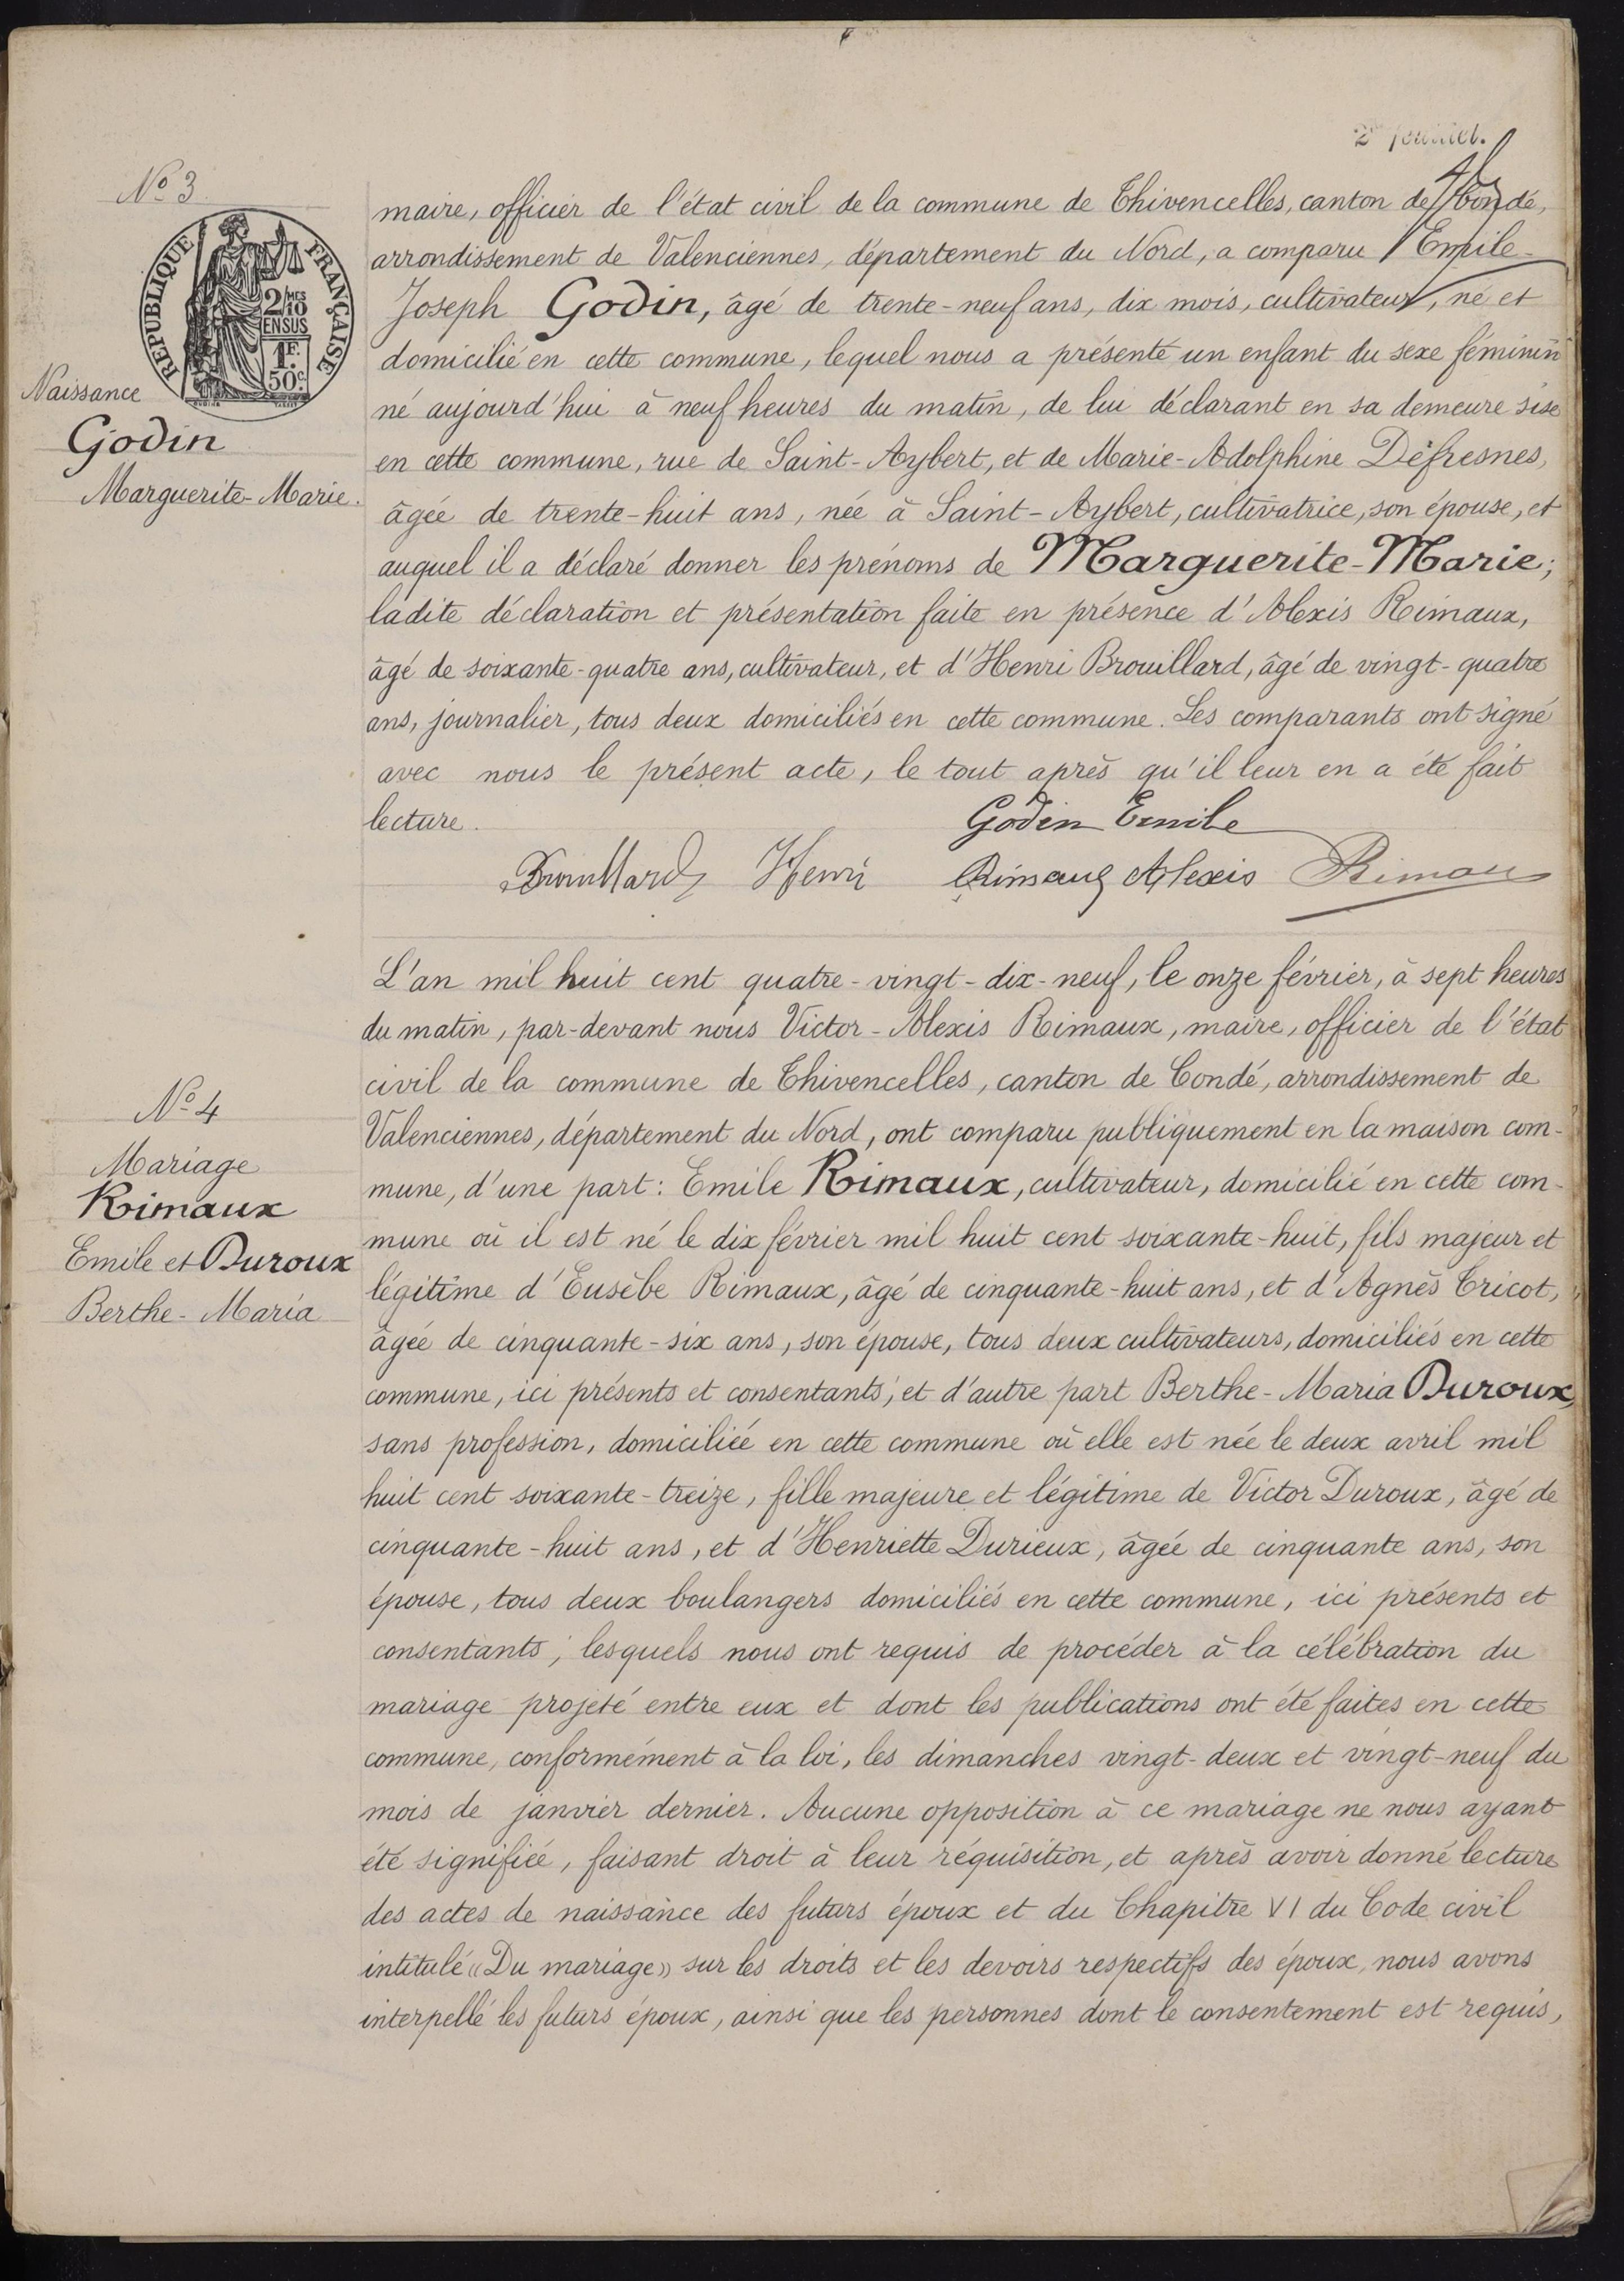 2e feuillet.
No 3
RÉPUBLIQUE FRANÇAISE
2/10 MES
EN SUS
1F.
50c.
Naissance
Godin
Marguerite-Marie.
maire, officier de l'état civil de la commune de Thivencelles, canton de Condé,
arrondissement de Valenciennes, département du Nord, a comparu Emile-
Joseph Godin, âgé de trente-neuf ans, dix mois, cultivateur, né et
domicilié en cette commune, lequel nous a présenté un enfant du sexe féminin
né aujourd'hui à neuf heures du matin, de lui déclarant en sa demeure sise
en cette commune, rue de Saint-Aybert, et de Marie-Adolphine Défresnes,
âgée de trente-huit ans, née à Saint-Aybert, cultivatrice, son épouse, et
auquel il a déclaré donner les prénoms de Marguerite-Marie;
ladite déclaration et présentation faite en présence d'Alexis Rimaux,
âgé de soixante-quatre ans, cultivateur, et d'Henri Brouillard, âgé de vingt-quatre
ans, journalier, tous deux domiciliés en cette commune. Les comparants ont signé
avec nous le présent acte, le tout après qu'il leur en a été fait
lecture.
Godin Emile
Brouillard Henri Rimaux Alexis Rimaux
No 4
Mariage
Rimaux
Emile et Duroux
Berthe-Maria
L'an mil huit cent quatre-vingt-dix-neuf, le onze février, à sept heures
du matin, par-devant nous Victor-Alexis Rimaux, maire, officier de l'état
civil de la commune de Thivencelles, canton de Condé, arrondissement de
Valenciennes, département du Nord, ont comparu publiquement en la maison com-
mune, d'une part: Emile Rimaux, cultivateur, domicilié en cette com-
mune où il est né le dix février mil huit cent soixante-huit, fils majeur et
légitime d'Eusèbe Rimaux, âgé de cinquante-huit ans, et d'Agnès Cricot,
âgée de cinquante-six ans, son épouse, tous deux cultivateurs, domiciliés en cette
commune, ici présents et consentants; et d'autre part Berthe-Maria Duroux,
sans profession, domiciliée en cette commune où elle est née le deux avril mil
huit cent soixante-treize, fille majeure et légitime de Victor Duroux, âgé de
cinquante-huit ans, et d'Henriette Durieux, âgée de cinquante ans, son
épouse, tous deux boulangers domiciliés en cette commune, ici présents et
consentants; lesquels nous ont requis de procéder à la célébration du
mariage projeté entre eux et dont les publications ont été faites en cette
commune, conformément à la loi, les dimanches vingt-deux et vingt-neuf du
mois de janvier dernier. Aucune opposition à ce mariage ne nous ayant
été signifiée, faisant droit à leur réquisition, et après avoir donné lecture
des actes de naissance des futurs époux et du Chapitre VI du Code civil
intitulé «Du mariage» sur les droits et les devoirs respectifs des époux, nous avons
interpellé les futurs époux, ainsi que les personnes dont le consentement est requis,